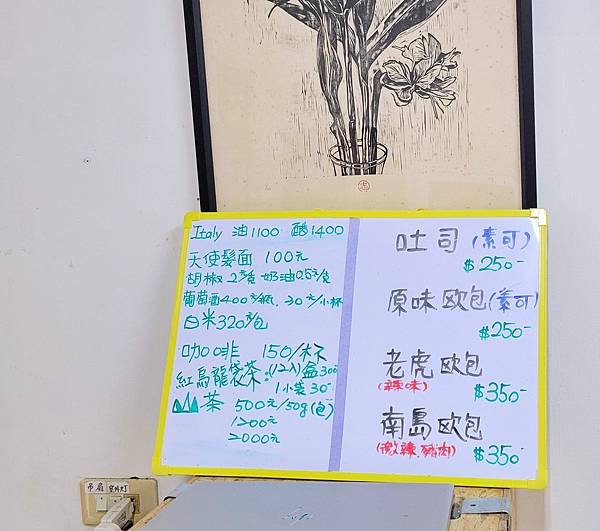 Italy 油1100 醋1400
天使髮面 100元
胡椒 2元/克 奶油0.5元/克
葡萄酒400元/瓶、30元/小杯
白米320元/包
咖啡 150/杯
紅烏龍袋茶:(12入)盒300
1小袋30-
山茶 500元/50g(包)
1200元
2000元
吐司(素可)
$250-
原味欧包(素可)
$250-
老虎欧包
(辣味)
$350-
南島欧包
(微辣.豬肉)
$350-
吊扇 室外灯